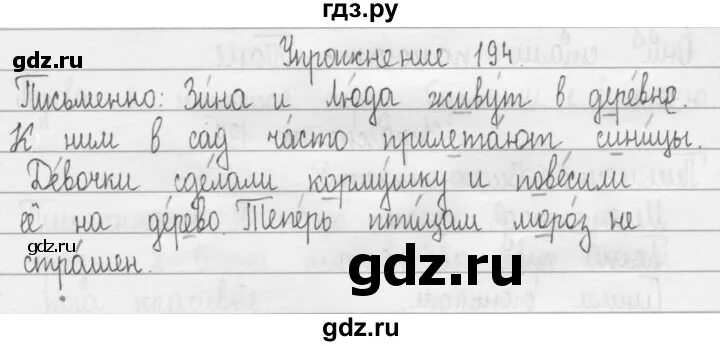 гдз.ру
gdz.ru
Упражнение 194.
Письменно: Зи́на и Лю́да живу́т в дере́вне.
К ним в сад ча́сто прилета́ют сини́цы.
Де́вочки сде́лали корму́шку и пове́сили
её на де́рево. Тепе́рь пти́цам моро́з не
gdz.ru
gdz.ru
стра́шен.
gdz.ru